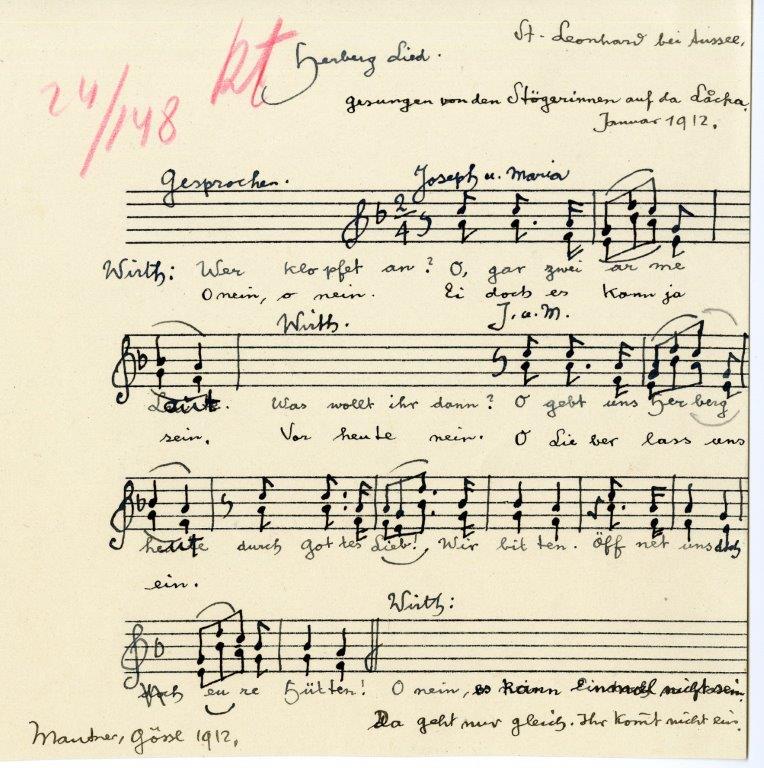 St. Leonhard bei Aussee,
24/148 kt Herberg Lied.
gesungen von den Stögerinnen auf da Låcka.
Januar 1912.
Gesprochen. Joseph u. Maria
2/4
Wirth: Wer klopfet an? O, gar zwei ar me
O nein, o nein. Ei doch es kann ja
Wirth. J. u. M.
Leut. Was wollt ihr dann? O gebt uns Herberg
sein. Vor heute nein. O Lie ber lass uns
heute durch got tes Lieb! Wir bit ten. Öff net uns doch
ein.
Wirth:
doch eu re Hütten! O nein, es kann Einmal nicht sein.
Da geht nur gleich. Ihr kom̄t nicht ein.
Mautner, Gössl 1912.